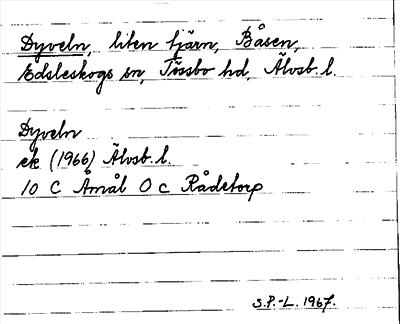 Dyveln, liten tjärn, Båsen,
Edsleskogs sn, Tössbo hd, Älvsb. l.
Dyveln
ek (1966) Älvsb. l.
10 C Åmål 0 c Rådetorp
S.P.-L. 1967.